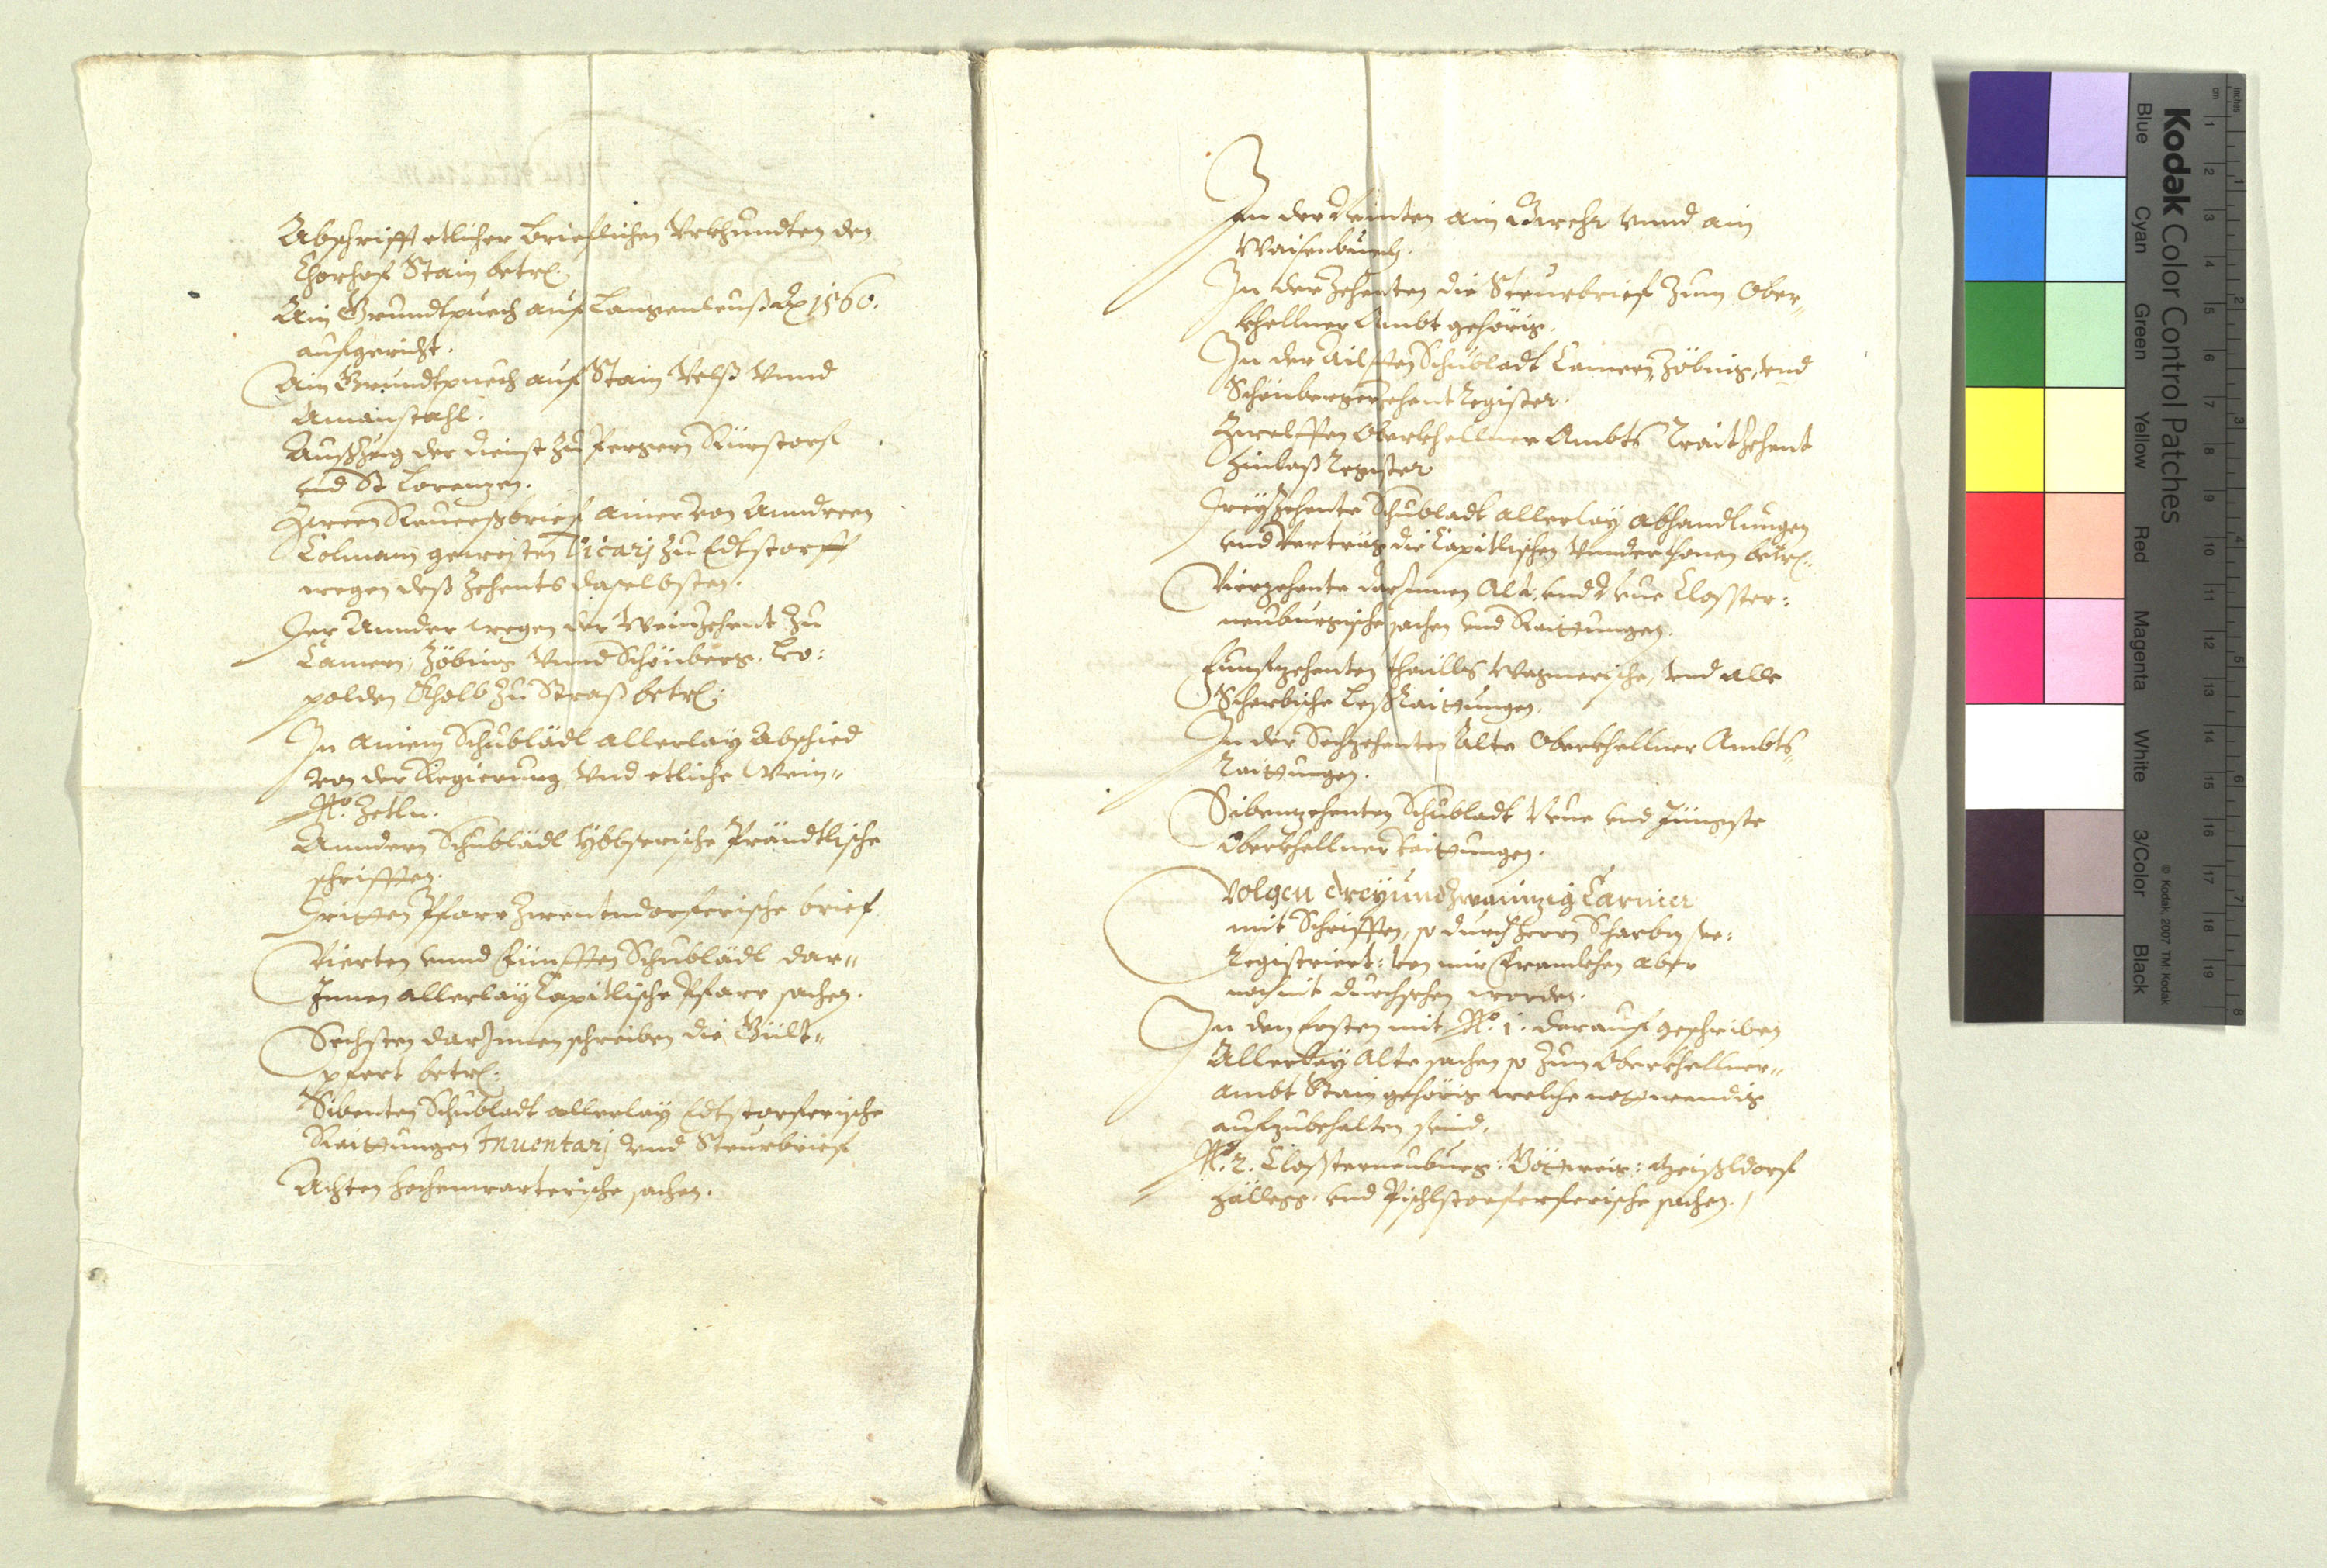 Abschrifft etlicher brieflichen Vrkhundten den
Chorhof Stain betr.
Ain Grundtpuech auf Langenleuß 1560.
aufgericht.
Ain Grundtpuech auf Stain Velß vnnd
Amainstahl.
Außzug der Dienst zu
vnd St Lorenzen.
Zween Reuerßbrief ainer von Anndreen
Colman gewesten Vicarj zu Edtstorff
wegen deß Zehents daselbsten.
Der Annder wegen der Weinzehent zu
Camern: Zöbing vnnd Schönberg. Leo:
polden Kholb zu Straß betr.
In ainem Schublädl allerlay Abschied
von der Regierung vnd etliche Wein„
Zetln.
Anndern Schublädl Ybbserische Prändtlische
schrifften.
Dritten Pfarr Zwentendorferische brief
Vierten vnnd Fünfften Schublädl dar„
Innen allerlay Capitlische Pfarr sachen.
Sechsten darInnen schreiben die Gült„
pfert betr.
Sibenten Schubladt allerlay Edtstorferische
Raittungen Inuentarj vnd Steurbrief
Achten Hochenwarterische sachen.
In der Neunten ain vnnd ain
Waisenbuech.
In der Zehenten die Steurbrief zum Ober„
khellner Ambt gehörig.
In der Ailfften Schubladt Camern, Zöbing, vnd
Schönberger Zehent Register.
Zwelfften Oberkhellner Ambts Traitzehent
Hinlaß Register
Dreyzehente Schubladt allerlay abhandlungen
vnd Verträg die Capitlischen Vnderthonen betr.
Vierzehente darInnen Alt vnd Neue Closter:
neuburgische sachen vnd Raittungen.
Funfzehenten thaills Wagnerische, vnd alle
Scharbische Leß Raittungen.
In der Sechzehenten Alte Oberkhellner Ambts„
Raittungen.
Sibenzehenten Schubladt Neue vnd Jüngste
Oberkhellner Raittungen.
Volgen dreyundzwainzig Carnier
mit Schrifften, so durch Herrn Scharben
Registriert: von mir Framlehen aber
noch nit durchsehen worden.
In dem Ersten mit No. 1. darauf geschriben
Allerlay Alte sachen so zum Oberkhellner„
ambt Stain gehörig welche nottwendig
aufzubehalten seind.
No. 2. Closterneuburg: Göttweig: Geißldorf
vnd Pischstorferische sachen.